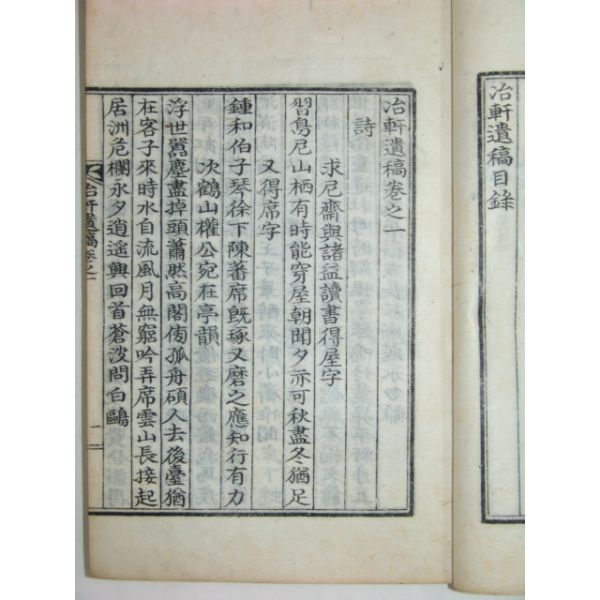 冶軒遺稿目錄
冶軒遺稿卷之一
詩
求尼齋與諸益讀書得屋字
習鳥尼山栖有時能穿屋朝聞夕亦可秋盡冬猶足
又得席字
鍾和伯子琴徐下陳蕃席旣琢又磨之應知行有力
次鶴山權公宛在亭韻
浮世囂塵盡掉頭蕭然高閣傍孤舟碩人去後臺猶
在客子來時水自流風月無窮吟弄席雲山長接起
居洲危欄永夕逍遙興回首蒼波問白鷗
冶軒遺稿卷之一